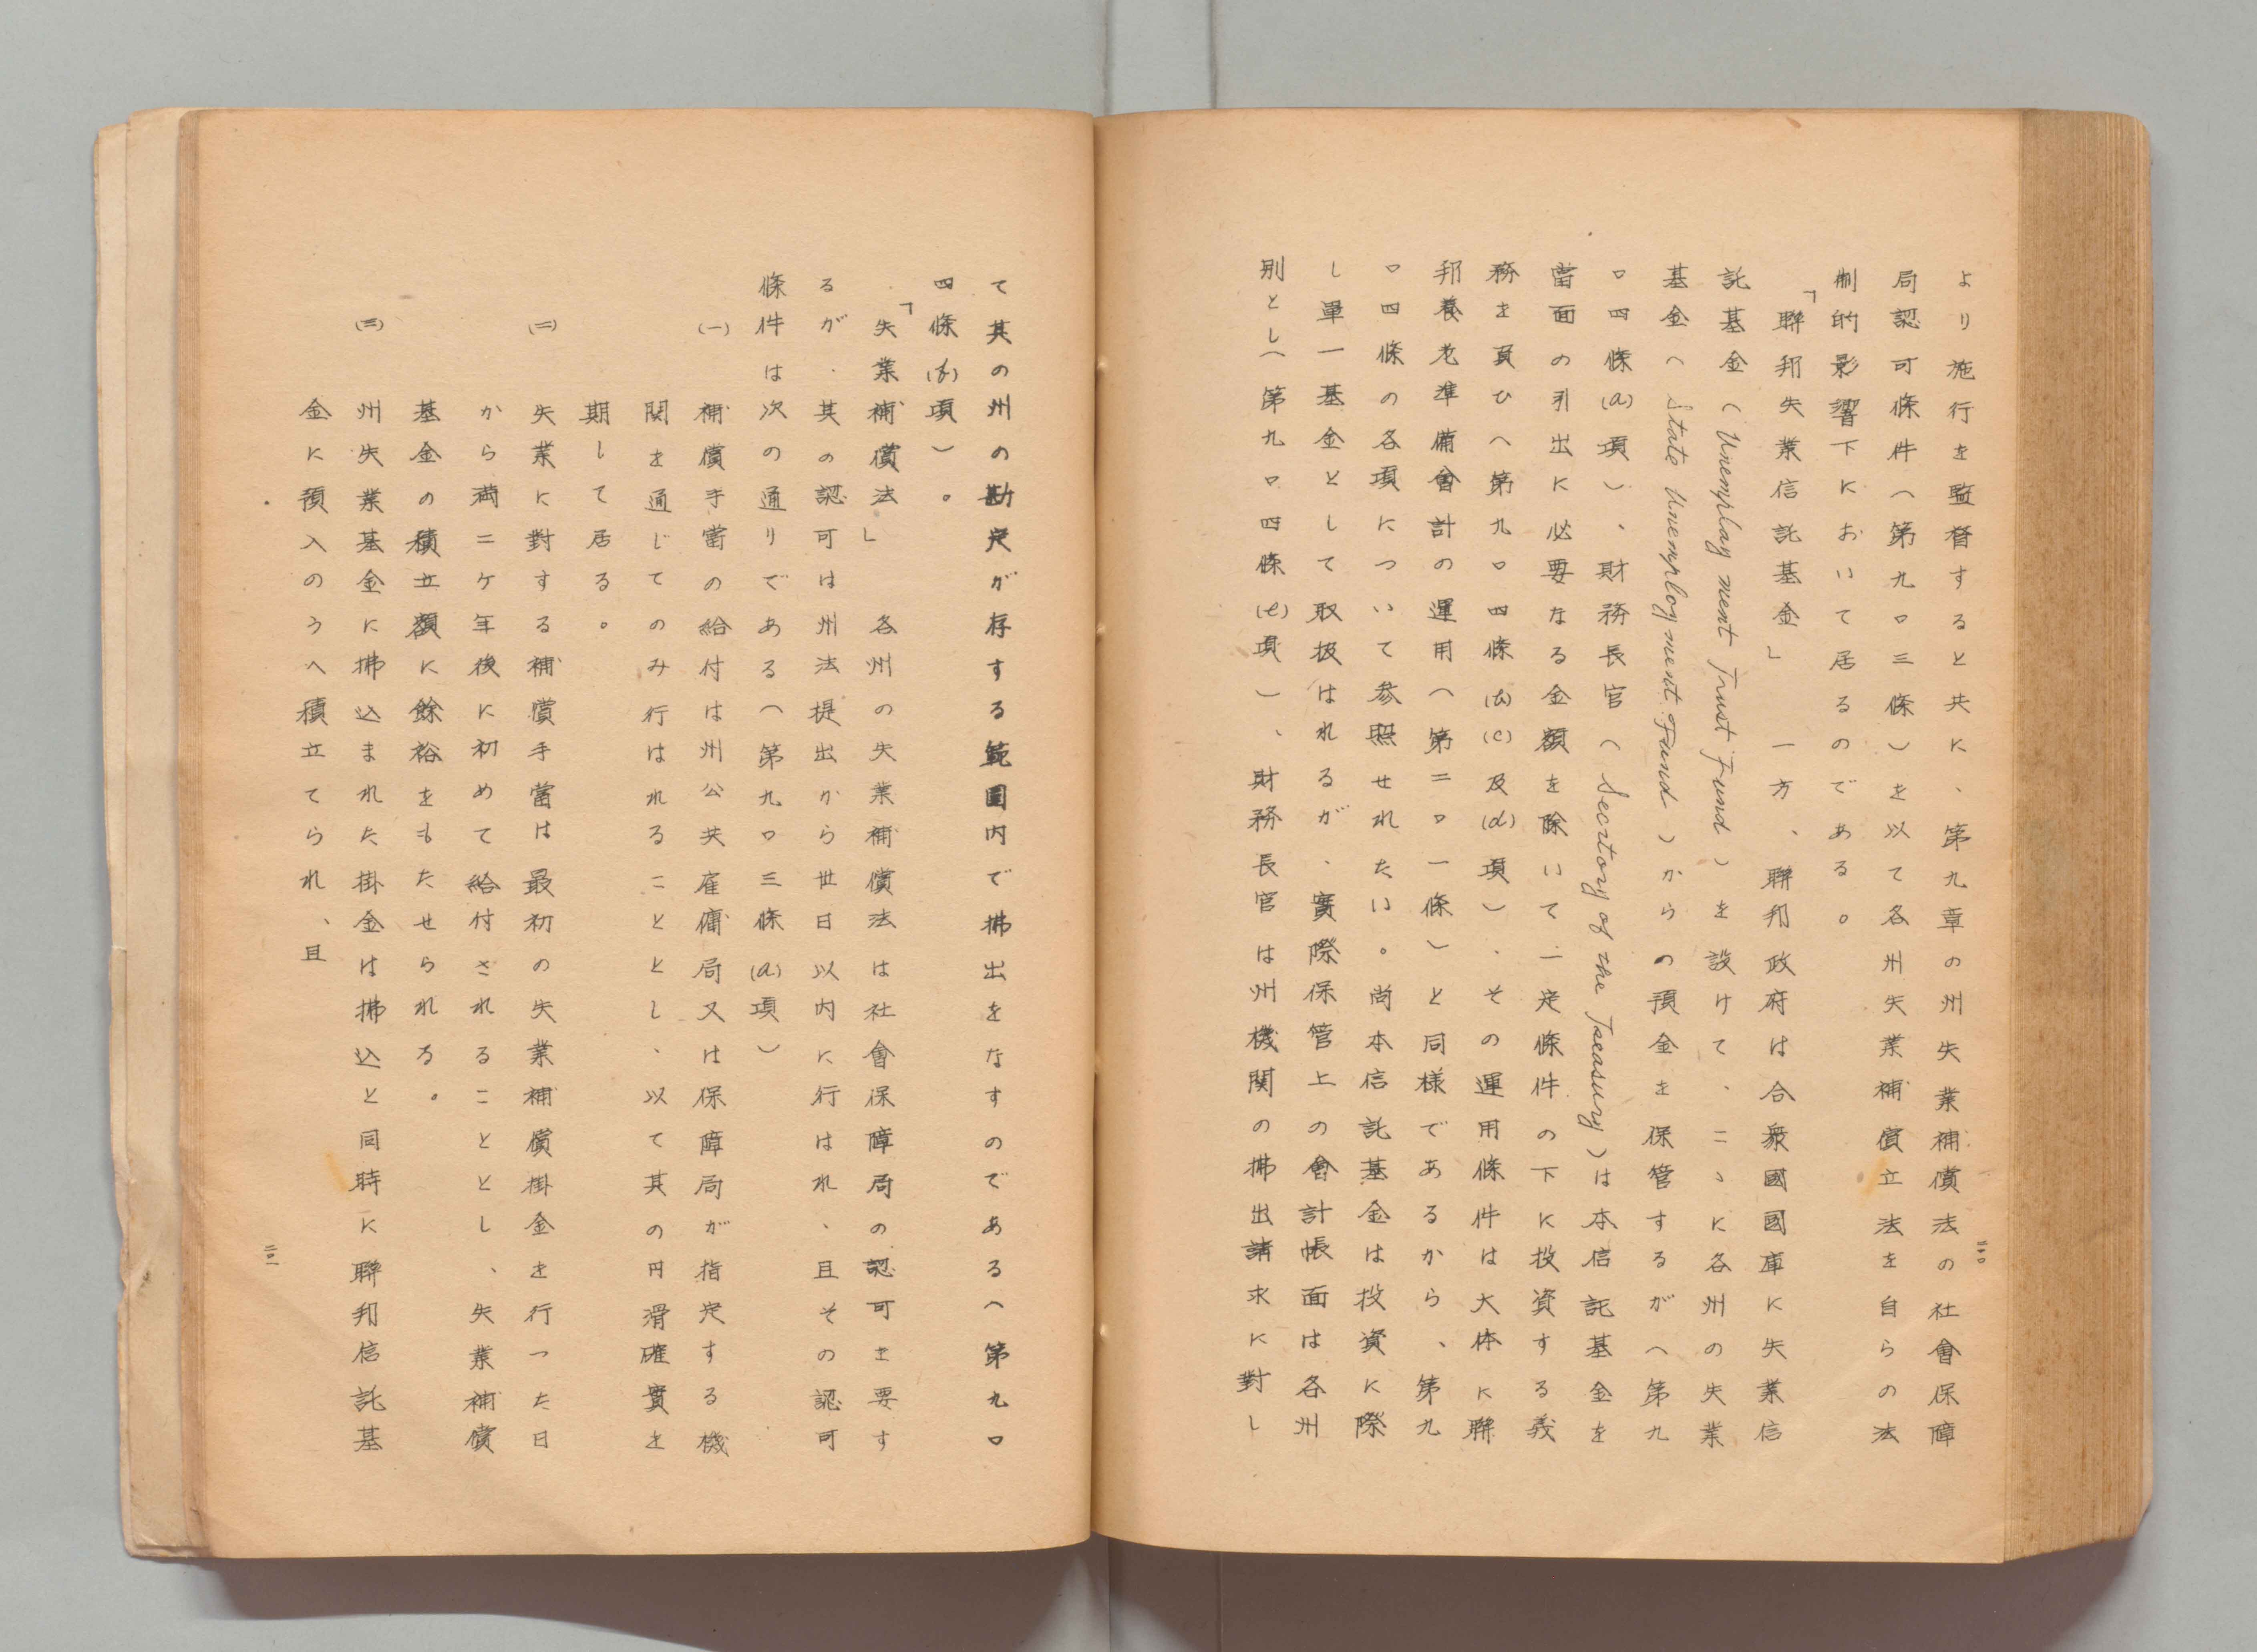 より施行を監督すると共に、第九章の州失業補償法の社會保障
局認可條件（第九〇三條）を以て各州失業補償立法を自らの法
制的影響下において居るのである。
「聯邦失業信託基金」　一方、聯邦政府は合衆國國庫に失業信
託基金（Unemployment Trust Fund）を設けて、こゝに各州の失業
基金（State Unemployment Fund）からの預金を保管するが（第九
〇四條(a)項）、財務長官（Secretory of the Treasury）は本信託基金を
當面の引出に必要なる金額を除いて一定條件の下に投資する義
務を負ひ（第九〇四條(b)(c)及(d)項）、その運用條件は大体に聯
邦養老準備會計の運用（第二〇一條）と同様であるから、第九
〇四條の各項について参照せれたい。尚本信託基金は投資に際
し單一基金として取扱はれるが、實際保管上の會計帳面は各州
別とし（第九〇四條(e)項）、財務長官は州機関の拂出請求に對し
二〇
て其の州の勘定が存する範圍内で拂出をなすのである（第九〇
四條(f)項）。
「失業補償法」　各州の失業補償法は社會保障局の認可を要す
るが、其の認可は州法提出から卅日以内に行はれ、且その認可
條件は次の通りである（第九〇三條(a)項）
(一)　補償手當の給付は州公共雇傭局又は保障局が指定する機
関を通じてのみ行はれることとし、以て其の円滑確實を
期して居る。
(二)　失業に對する補償手當は最初の失業補償掛金を行つた日
から満二ケ年後に初めて給付されることとし、失業補償
基金の積立額に餘裕をもたせられる。
(三)　州失業基金に拂込まれた掛金は拂込と同時に聯邦信託基
金に預入のうへ積立てられ、且
二一